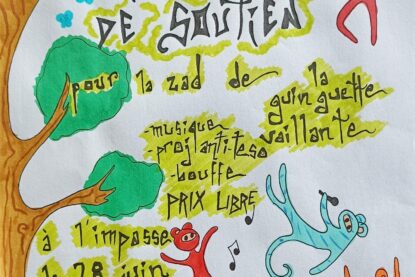 DE SOUTIEN
pour la zad de la
guinguette
vaillante
-musique
-proj anti-teso
-bouffe
PRIX LIBRE
à l'impasse
28 juin